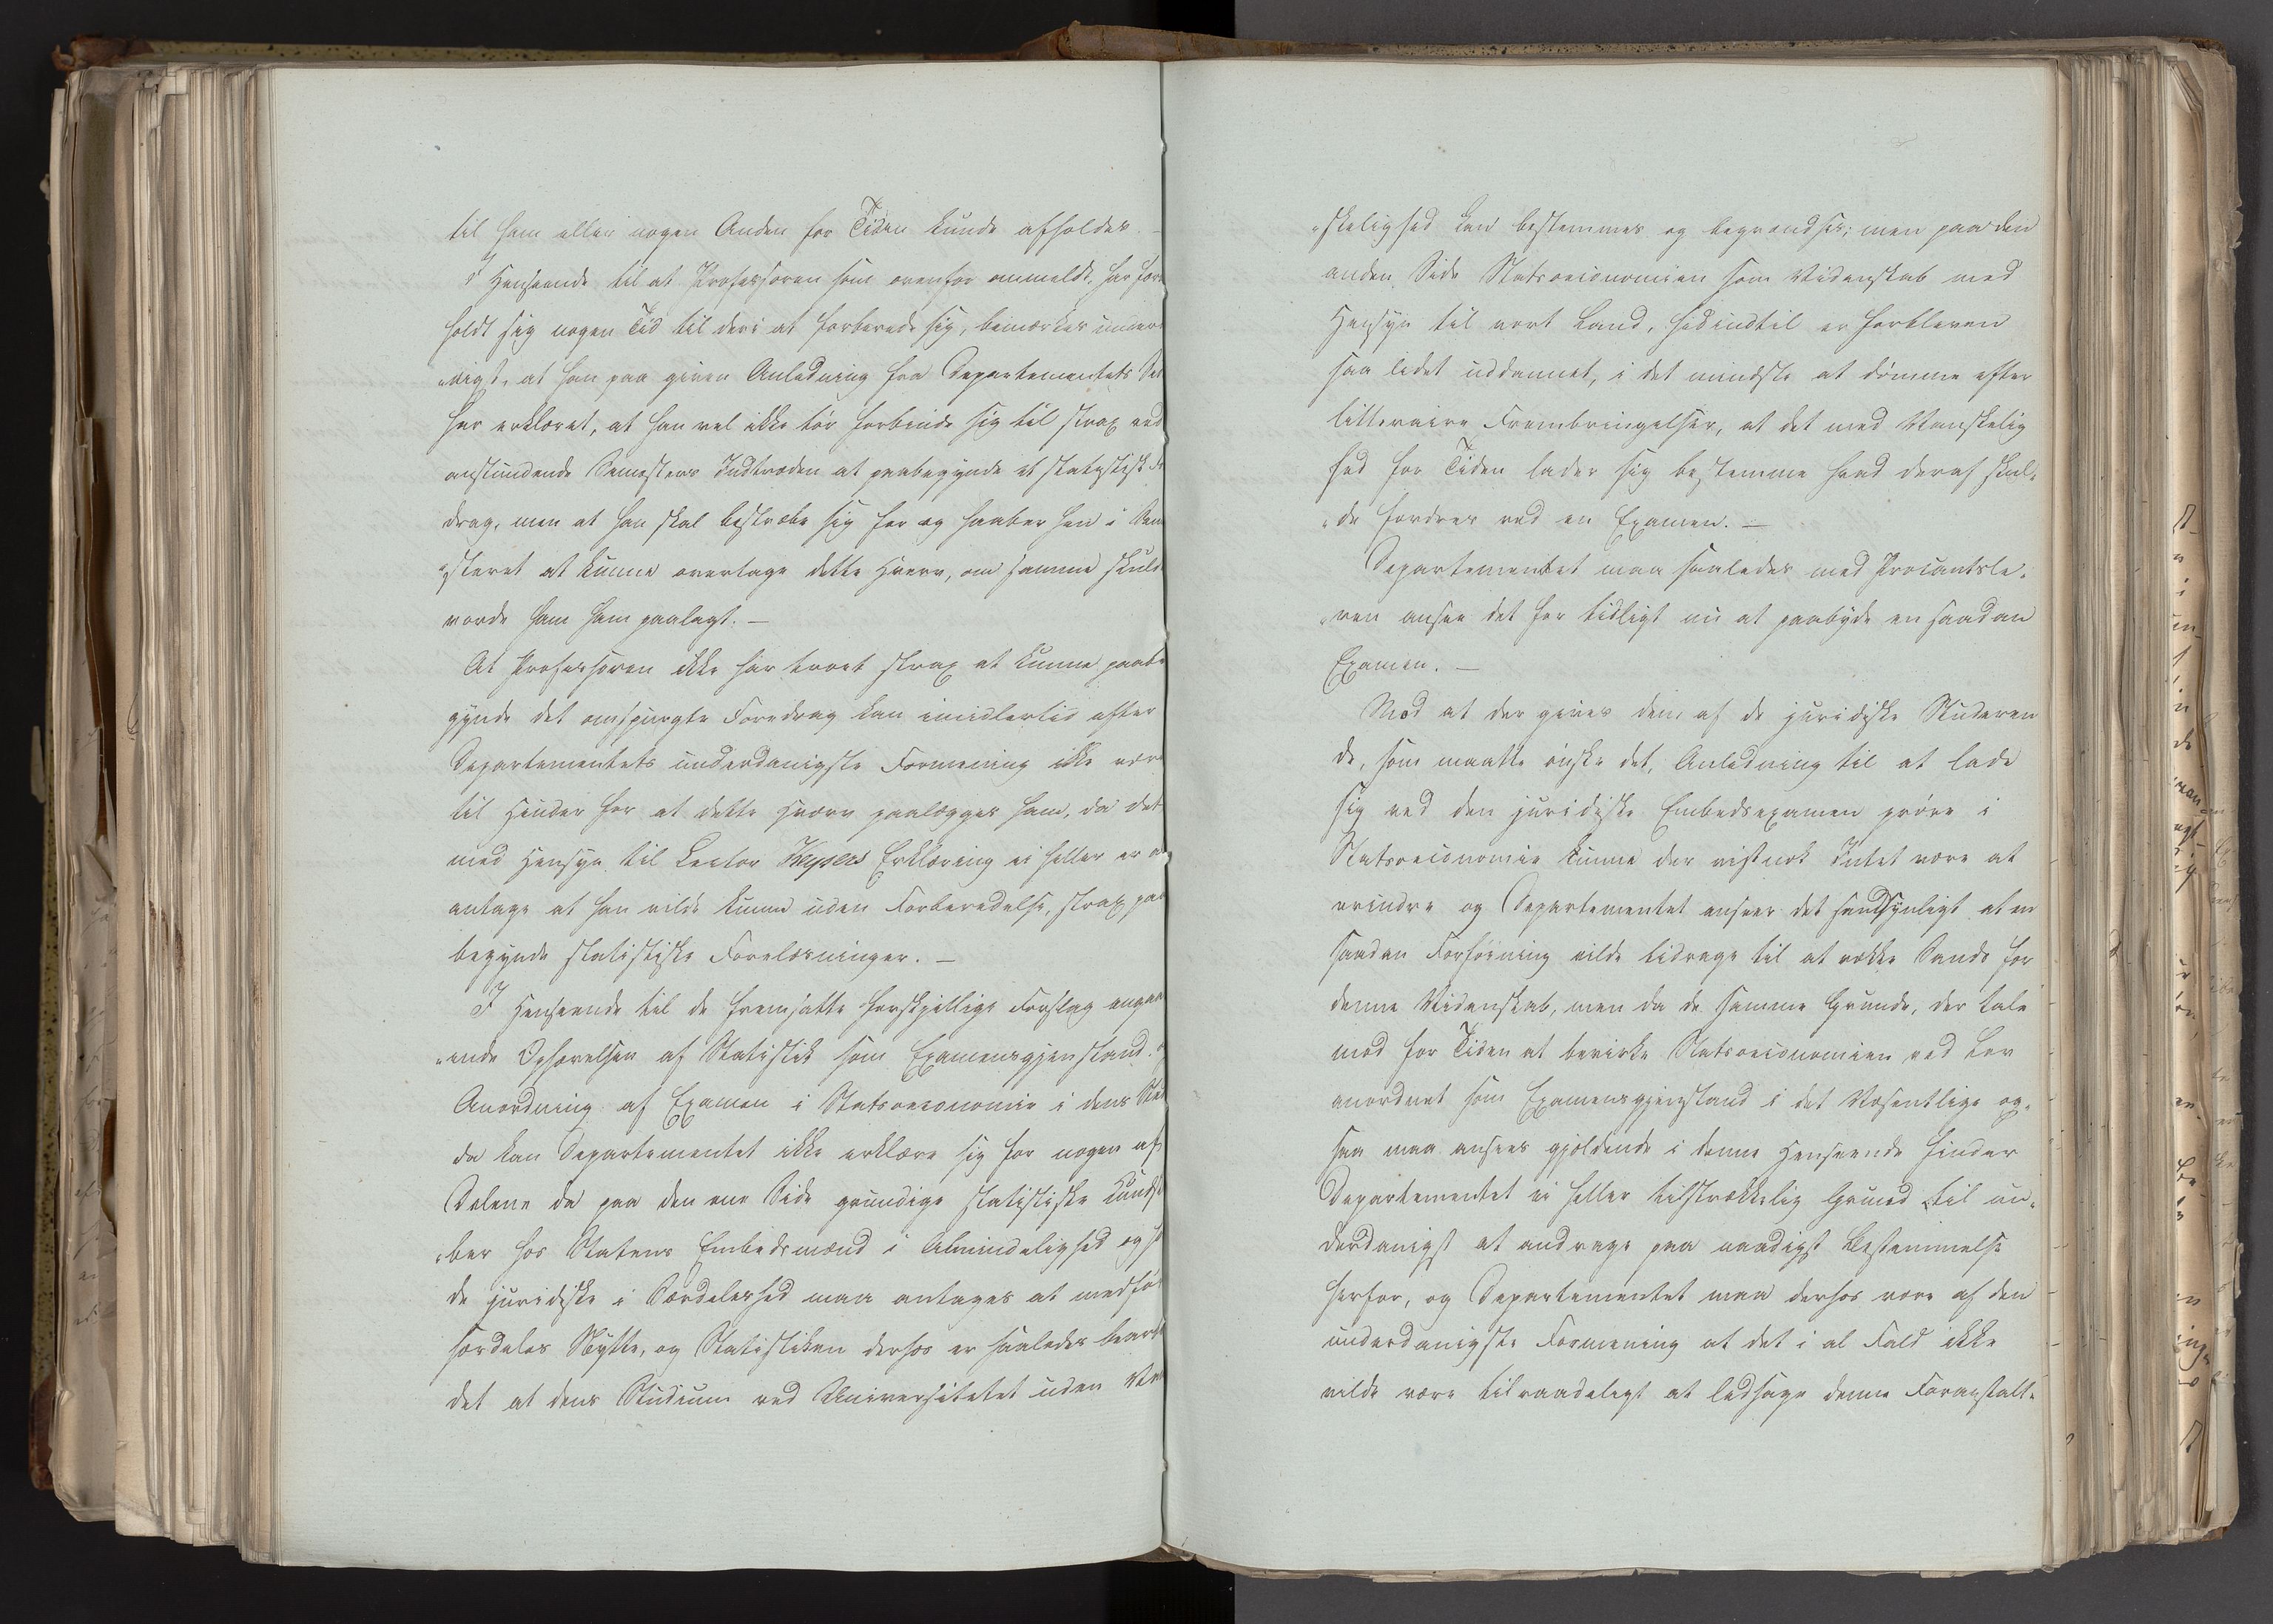 til ham eller nogen Anden for Tiden kunde afholdes. —
I Henseende til at Professoren som ovenfor anmeldt, har fore
holdt sig nogen Tid til deri at forberede sig, bemærkes under
„nigst, at han paa given Anledning fra Departementets Side
har erklæret, at han vel ikke tør forbinde sig til strax ved
anstundende Semesters Indtræden at paabegynde et statistisk Fo
drag, men at han skal bestræbe sig for og haaber hen i Seme
„steret at kunne overtage dette Hverv, om samme skulde
vorde ham ham paalagt. —
At Professoren ikke har troet strax at kunne paabe
gynde det omspurgte Foredrag kan imidlertid efter
Departementets underdanigste Formening ikke være
til Hinder for at dette Hværv paalægges ham, da det
med Hensyn til Lector Keysers Erklæring ei heller er at
antage at han vilde kunne uden Forberedelse, strax paa
begynde statistiske Forelæsninger. —
I Henseende til de fremsatte forskjellige Forslag angaa
„ende Ophævelsen af Statistik som Examensgjenstand og
Anordning af Examen i Statsoeconomie i dens Sted
da kan Departementet ikke erklære sig for nogen af
Delene da paa den ene Side grundige statistiske Kundsk
„ber hos Statens Embedsmænd i Almindelighed og hos
de juridiske i Særdeleshed maa antages at medføre
særdeles Nytte, og Statistiken derhos er saaledes bearbei
det at dens Studium ved Universitetet uden Van
„skelighed kan bestemmes og begrændses; men paa den
anden Side Statsoeconomien som Videnskab med
Hensyn til vort Land, hidindtil er forbleven
saa lidet uddannet, i det mindste at dømme efter
litteraire Frembringelser, at det med Vanskelig
hed for Tiden lader sig bestemme hvad deraf skul„
„de fordres ved en Examen. —
Departementet maa saaledes med Procantsle„
„ren ansee det for tidligt nu at paabyde en saadan
Examen. —
Mod at der gives dem af de juridiske Studeren
de, som maatte ønske det, Anledning til at lade
sig ved den juridiske Embedsexamen prøve i
Statsoeconomie kunne der vistnok Intet være at
erindre og Departementet anseer det sandsynligt at en
saadan Forføining vilde bidrage til at vække Sands for
denne Videnskab, men da de samme Grunde, der tale
mod for Tiden at bevirke Statsoeconomien ved Lov
anordnet som Examensgjenstand i det Væsentlige og„
saa maa ansees gjældende i denne Henseende finder
Departementet ei heller tilstrækkelig Grund til un„
derdanigst at andrage paa naadigst Bestemmelse
herfor, og Departementet maa derhos være af den
underdanigste Formening at det i al Fald ikke
vilde være tilraadeligt at ledsage denne Foranstalt„